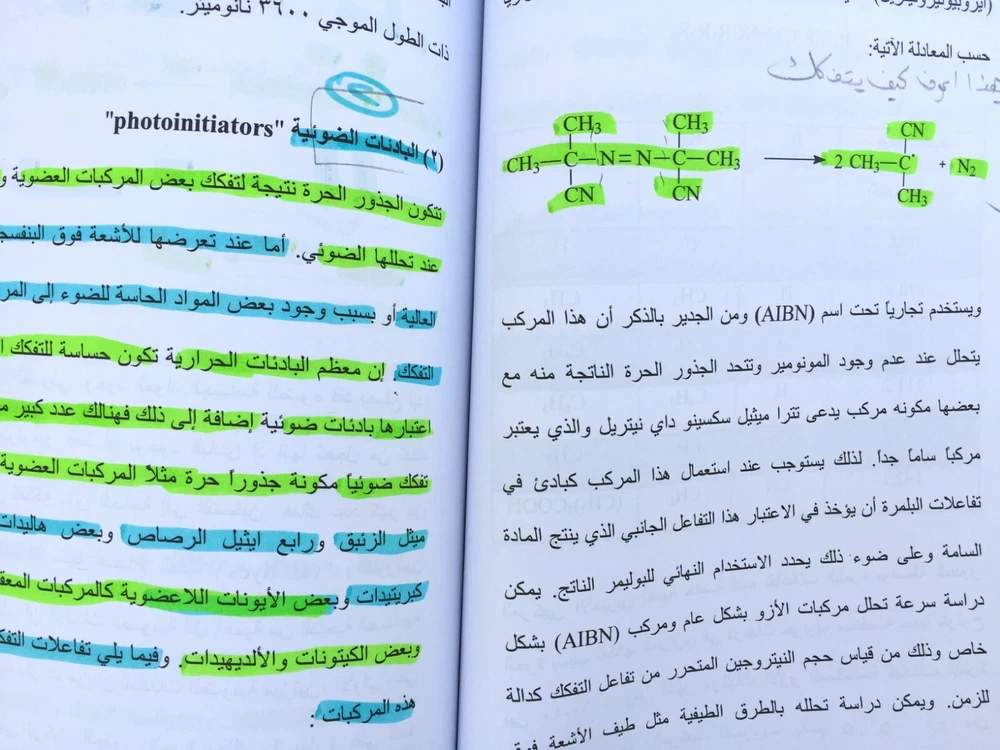 (ايزوبيوتيرونتريل)
حسب المعادلة الآتية:
كيف يتفكك
CH₃ CH₃ CN
CH₃—C—N=N—C—CH₃ → 2 CH₃—C· + N₂
CN CN CH₃
ويستخدم تجارياً تحت اسم (AIBN) ومن الجدير بالذكر أن هذا المركب
يتحلل عند عدم وجود المونومير وتتحد الجذور الحرة الناتجة منه مع
بعضها مكونه مركب يدعى تترا ميثيل سكسينو داي نيتريل والذي يعتبر
مركباً ساماً جداً. لذلك يستوجب عند استعمال هذا المركب كبادئ في
تفاعلات البلمرة أن يؤخذ في الاعتبار هذا التفاعل الجانبي الذي ينتج المادة
السامة وعلى ضوء ذلك يحدد الاستخدام النهائي للبوليمر الناتج. يمكن
دراسة سرعة تحلل مركبات الأزو بشكل عام ومركب (AIBN) بشكل
خاص وذلك من قياس حجم النيتروجين المتحرر من تفاعل التفكك كدالة
للزمن. ويمكن دراسة تحلله بالطرق الطيفية مثل طيف الأشعة فوق
ذات الطول الموجي ٣٦٠٠ نانوميتر.
(٢) البادئات الضوئية "photoinitiators"
تتكون الجذور الحرة نتيجة لتفكك بعض المركبات العضوية
عند تحللها الضوئي. أما عند تعرضها للأشعة فوق
العالية أو بسبب وجود بعض المواد الحاسة للضوء إلى
التفكك. إن معظم البادئات الحرارية تكون حساسة للتفكك
اعتبارها بادئات ضوئية إضافة إلى ذلك فهنالك عدد كبير
تفكك ضوئياً مكونة جذوراً حرة مثلاً المركبات العضوية
ميثل الزئبق ورابع ايثيل الرصاص وبعض هاليدات
كبريتيدات وبعض الأيونات اللاعضوية كالمركبات
وبعض الكيتونات والألديهيدات. وفيما يلي تفاعلات
هذه المركبات: